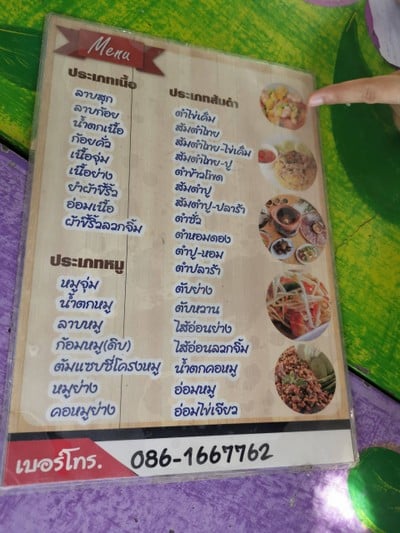 Menu
ประเภทเนื้อ
ลาบสุก
ลาบก้อย
น้ำตกเนื้อ
ก้อยคั่ว
เนื้อจุ่ม
เนื้อย่าง
ยำผ้าขี้ริ้ว
อ่อมเนื้อ
ผ้าขี้ริ้วลวกจิ้ม
ประเภทหมู
หมูจุ่ม
น้ำตกหมู
ลาบหมู
ก้อมหมู(ดิบ)
ต้มแซบซี่โครงหมู
หมูย่าง
คอหมูย่าง
ประเภทส้มตำ
ตำไข่เค็ม
ส้มตำไทย
ส้มตำไทย-ไข่เค็ม
ส้มตำไทย-ปู
ตำข้าวโพด
ส้มตำปู
ส้มตำปู-ปลาร้า
ตำซั่ว
ตำหอมดอง
ตำปู-หอม
ตำปลาร้า
ตับย่าง
ตับหวาน
ไส้อ่อนย่าง
ไส้อ่อนลวกจิ้ม
น้ำตกคอหมู
อ่อมหมู
อ่อมไข่เจียว
เบอร์โทร. 086-1667762